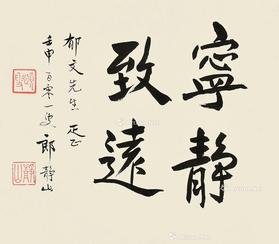 寧靜
致遠
郁文先生疋正
壬申百零一叟郎靜山